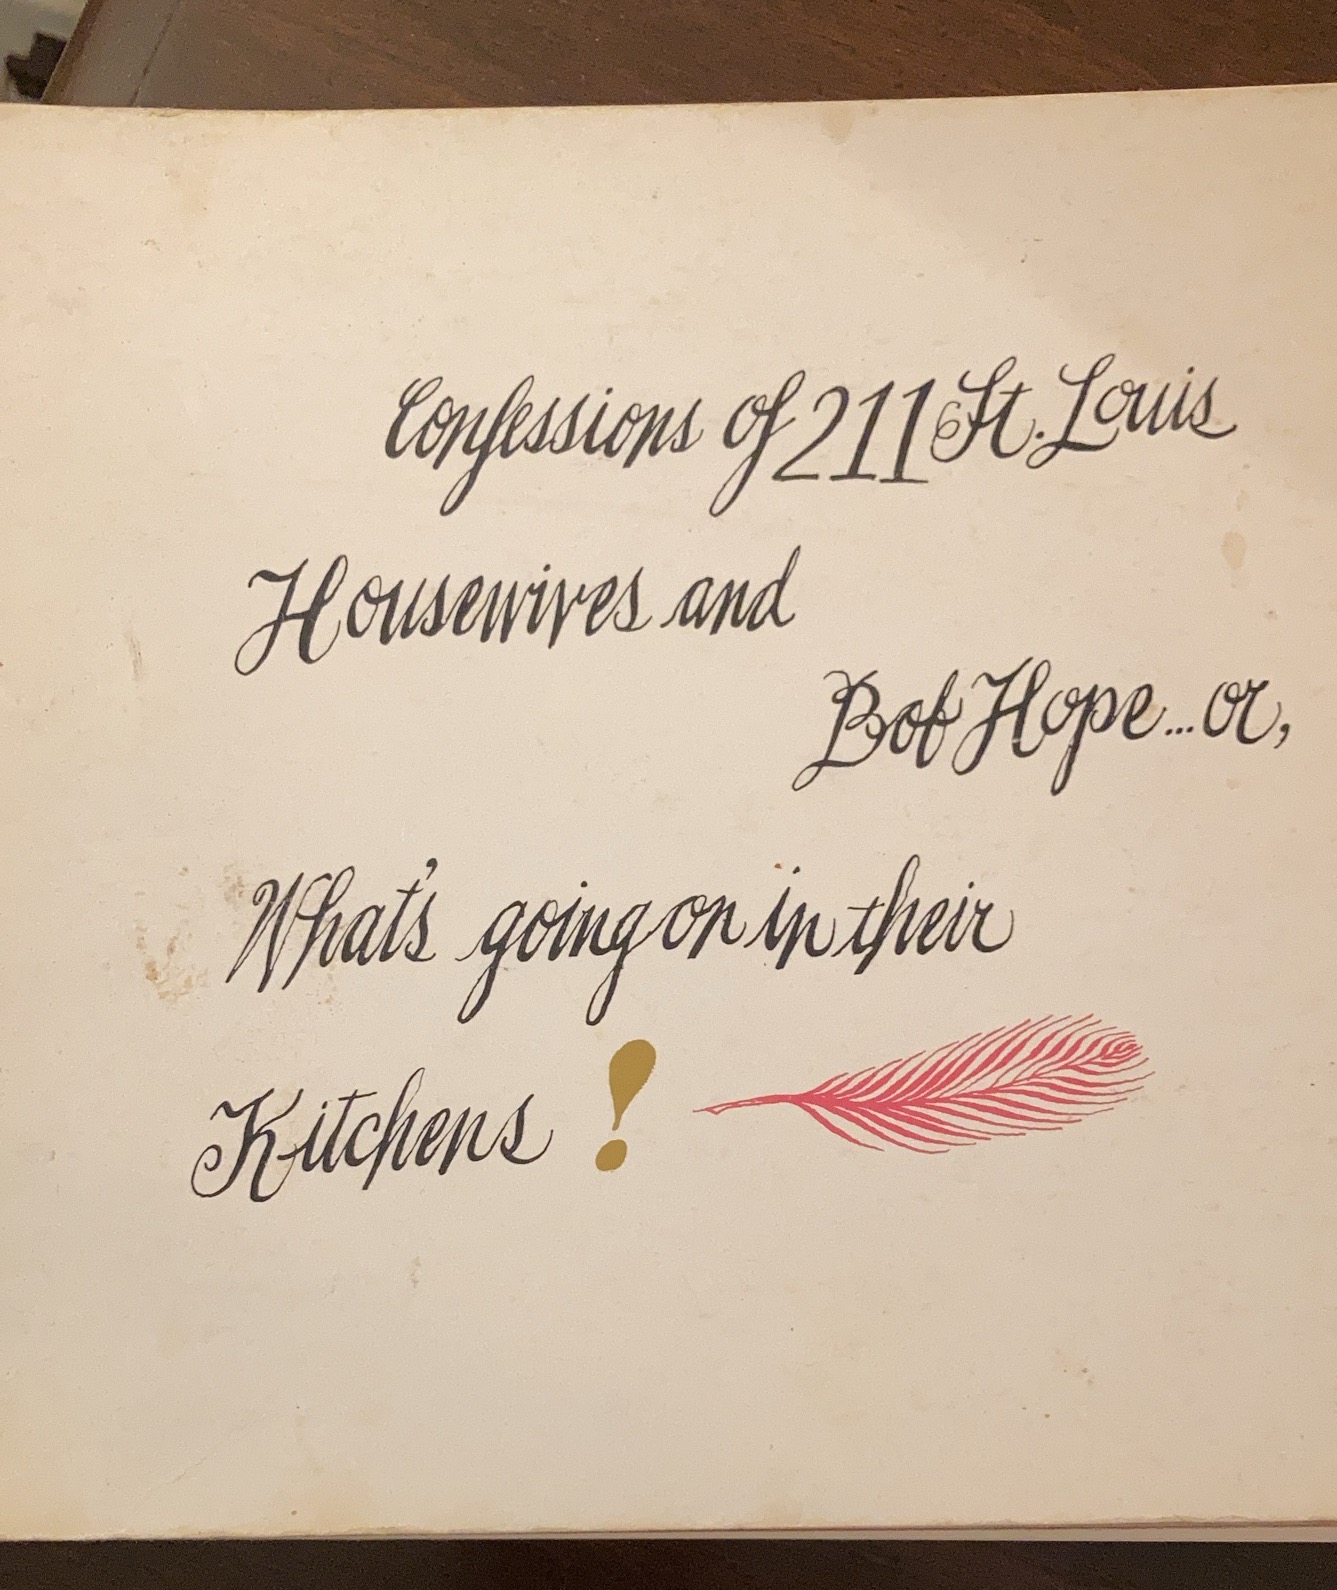 Confessions of 211 St. Louis
Housewives and
Bob Hope...or,
What's going on in their
Kitchens!